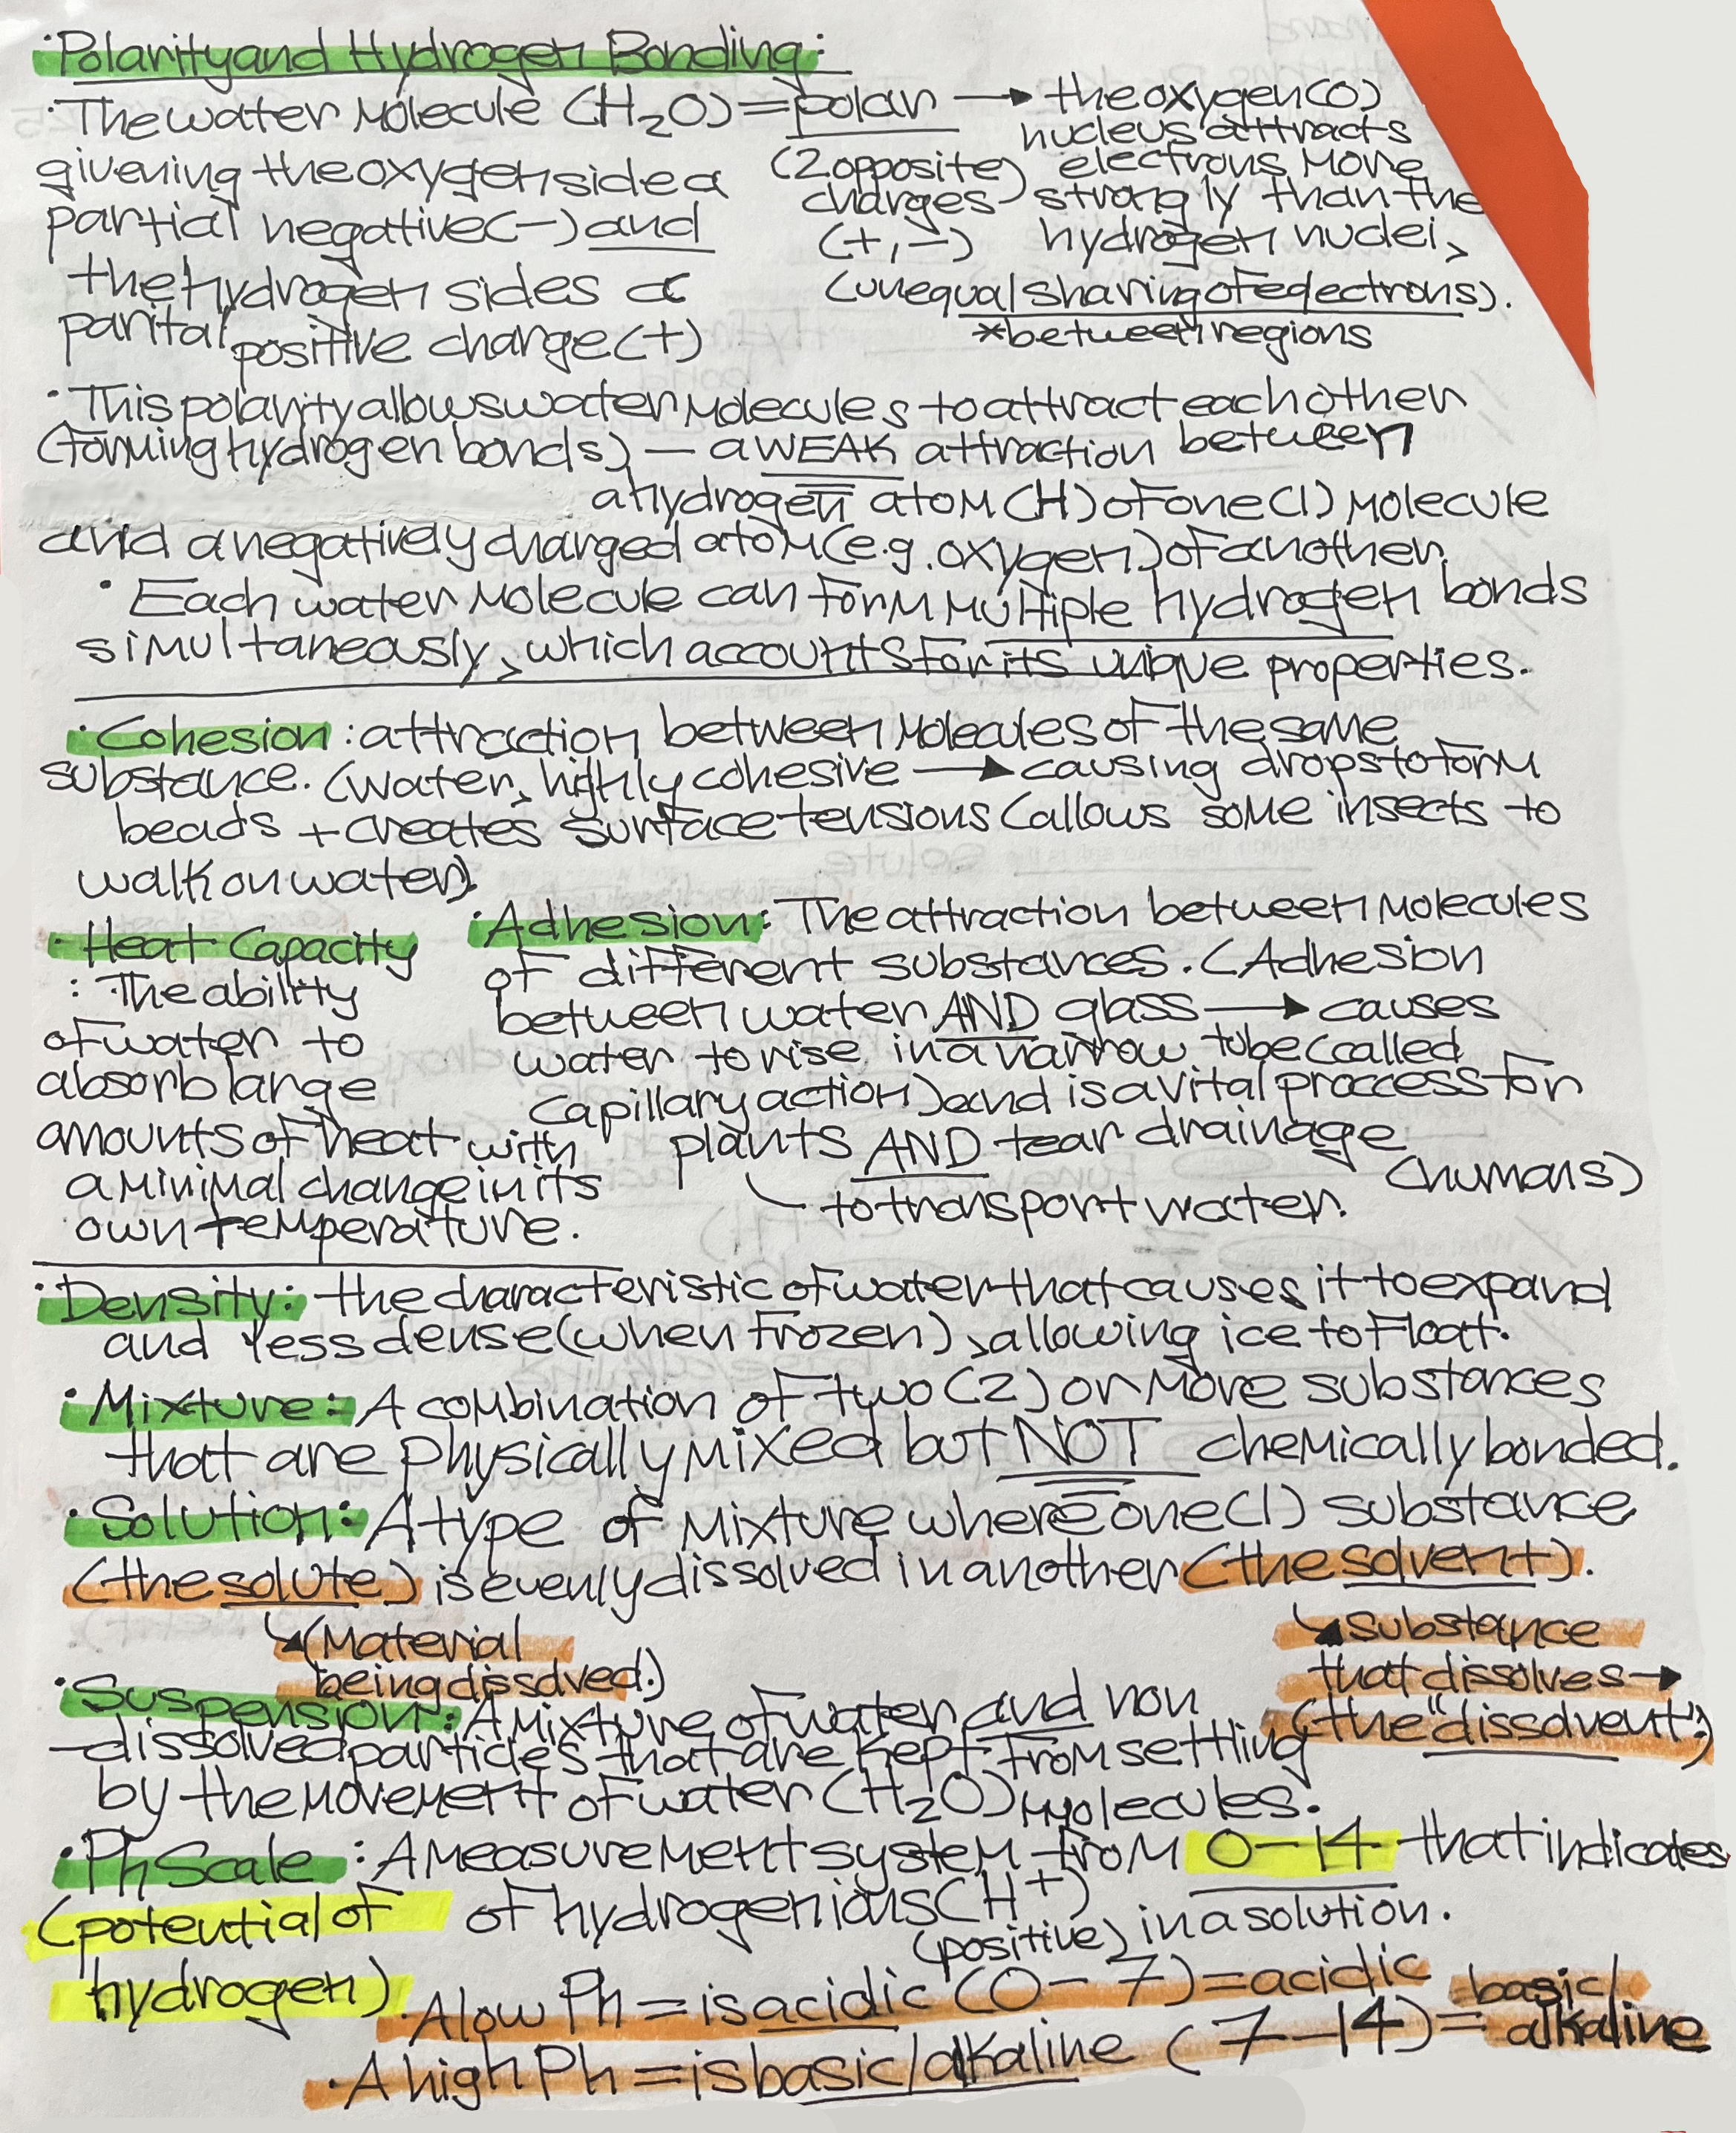 · Polarity and Hydrogen Bonding:
· The water Molecule (H₂O) = polar → the oxygen (O)
nucleus attracts
givening the oxygen side a (2 opposite) electrons more
charges strongly than the
partial negative (-) and (+, -) hydrogen nuclei,
the hydrogen sides a (unequal sharing of eqlectrons).
parital positive charge (+) *between regions
· This polarity allows water Molecules to attract each other
(forming hydrogen bonds) — a WEAK attraction between
a hydrogen atom (H) of one (1) Molecule
and a negatively charged atom (e.g. oxygen) of another.
· Each water Molecule can form multiple hydrogen bonds
simultaneously, which accounts for its unique properties.
· Cohesion: attraction between Molecules of the same
substance. (Water, highly cohesive → causing drops to form
beads + creates surface tensions (allows some insects to
walk on water).
· Heat Capacity
: The ability
of water to
absorb large
amounts of heat with
a minimal change in its
own temperature.
· Adhesion: The attraction between Molecules
of different substances. (Adhesion
between water AND glass → causes
water to rise in a narrow tube (called
capillary action) and is a vital proccess for
plants AND tear drainage
(humans)
to transport water.
· Density: the characteristic of water that causes it to expand
and less dense (when frozen), allowing ice to float.
· Mixture: A combination of two (2) or more substances
that are physically mixed but NOT chemically bonded.
· Solution: A type of Mixture where one (1) substance
(the solute) is evenly dissolved in another (the solvent).
(Material
being dissolved.)
substance
that dissolves →
(the "dissolvent")
· Suspension: A Mixture of water and non
-dissolved particles that are kept from settling
by the movement of water (H₂O) Molecules.
· Ph Scale: A measurement system from 0-14 that indicates
(potential of of hydrogen ions (H⁺) in a solution.
(positive)
hydrogen)
· A low Ph = is acidic (0-7) = acidic
· A high Ph = is basic/alkaline (7-14) = basic/
alkaline